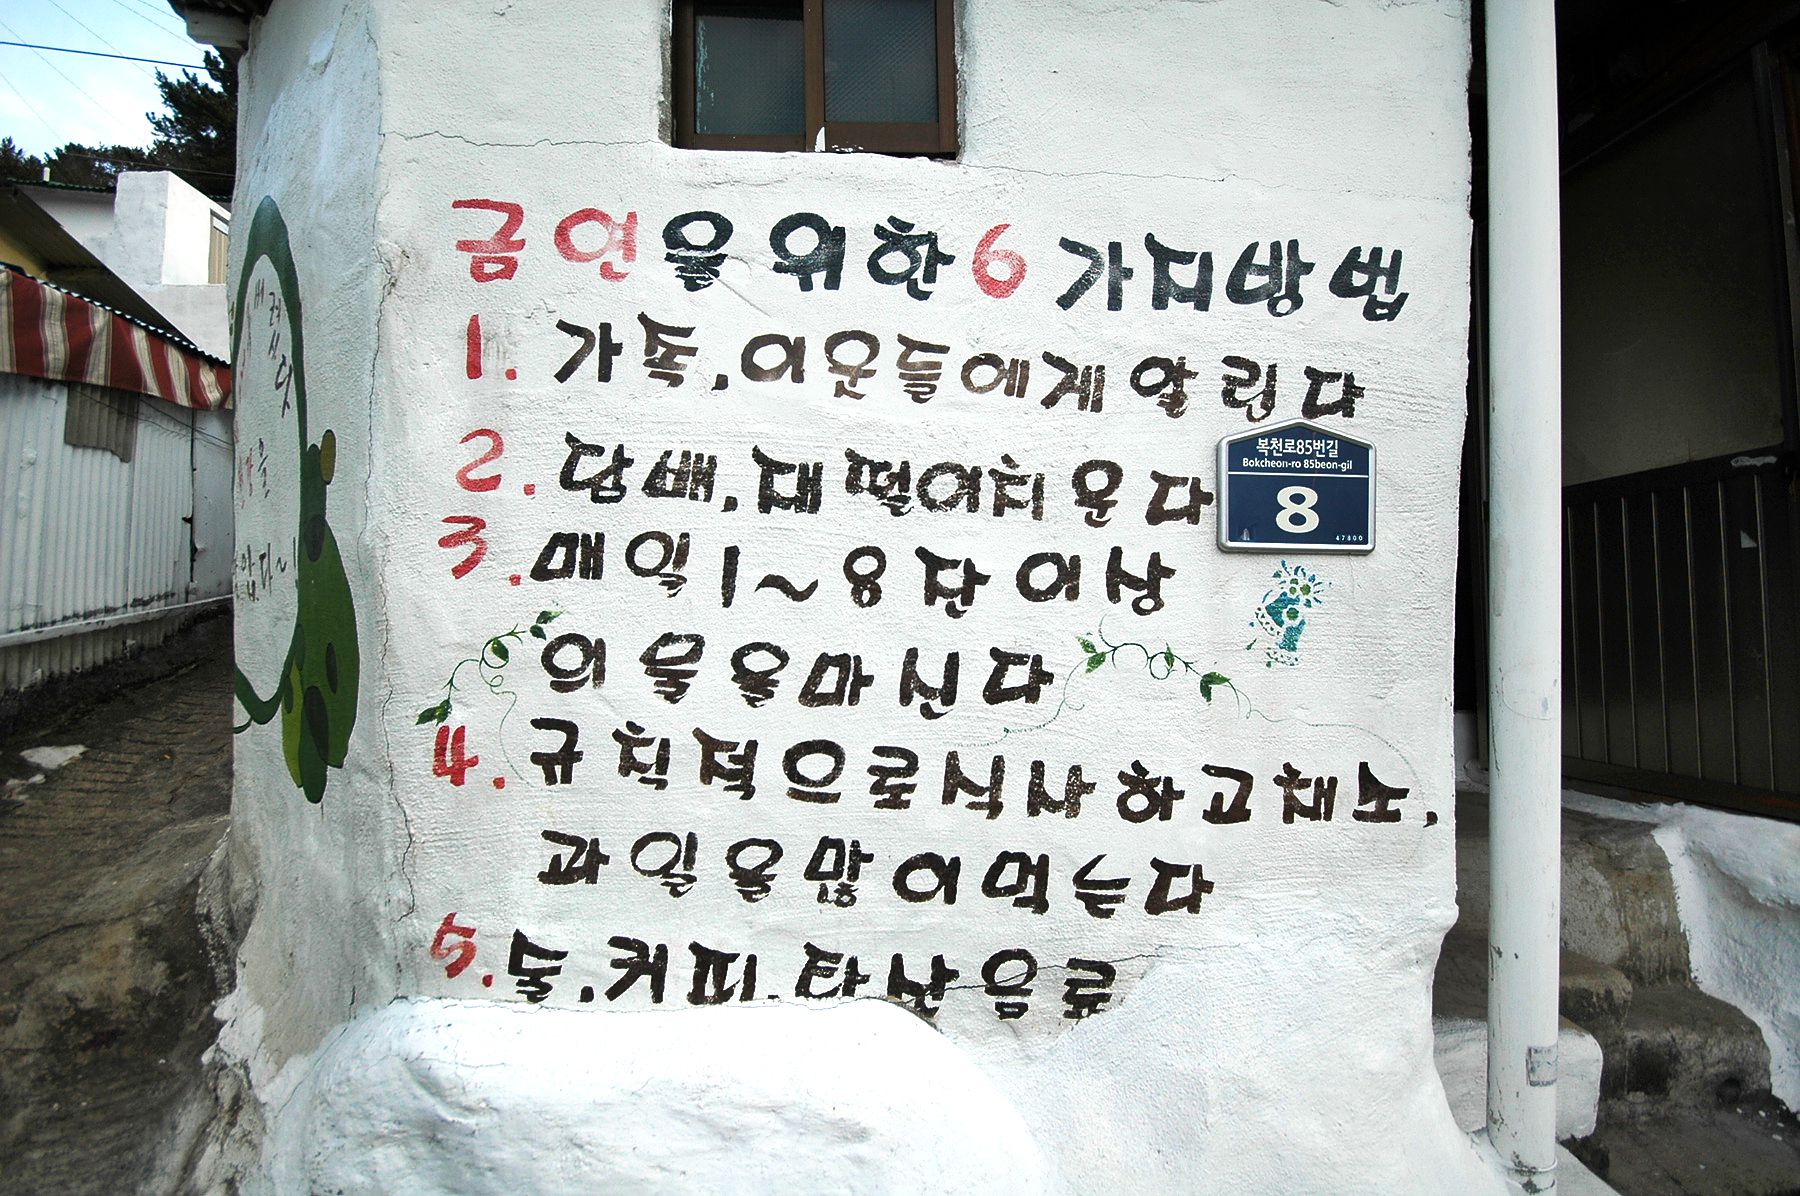 금연을 위한 6가지방법
1. 가족, 이웃들에게 알린다
2. 담배, 재떨이치운다
3. 매일 1~8잔이상
의 물을마신다
4. 규칙적으로식사하고채소,
과일을많이먹는다
5. 술.커피.탄산음료
복천로85번길
Bokcheon-ro 85beon-gil
8
47800